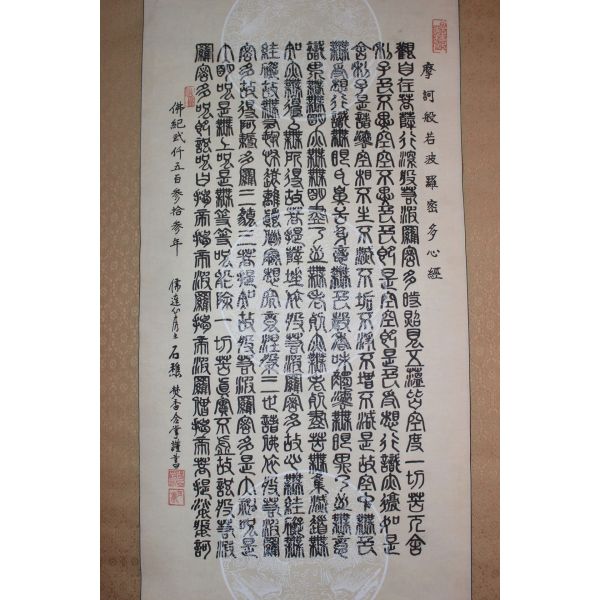 摩訶般若波羅密多心經
觀自在菩薩行深般若波羅密多時照見五蘊皆空度一切苦厄舍
利子色不異空空不異色色即是空空即是色受想行識亦復如是
舍利子是諸法空相不生不滅不垢不淨不增不減是故空中無色
無受想行識無眼耳鼻舌身意無色聲香味觸法無眼界乃至無意
識界無無明亦無無明盡乃至無老死亦無老死盡無苦集滅道無
智亦無得以無所得故菩提薩埵依般若波羅密多故心無罣礙無
罣礙故無有恐怖遠離顛倒夢想究竟涅槃三世諸佛依般若波羅
密多故得阿耨多羅三藐三菩提故知般若波羅密多是大神咒是
大明咒是無上咒是無等等咒能除一切苦真實不虛故說般若波
羅密多咒即說咒曰揭帝揭帝波羅揭帝波羅僧揭帝菩提薩婆訶
佛紀弍仟五百參拾參年 佛蓮 石 焚香合掌謹書